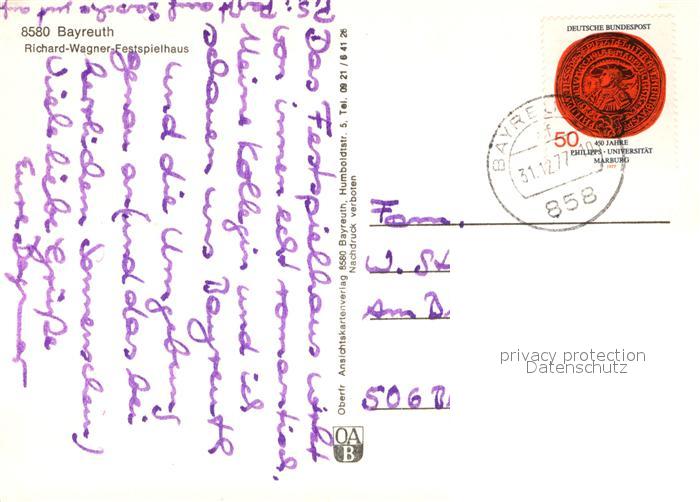 8580 Bayreuth
Richard-Wagner-Festspielhaus
P.S: Paßt auf Sascha gut auf
Das Festspielhaus wirkt
von innen echt romantisch.
Meine Kollegin und ich
schauen uns Bayreuth
und die Umgebung
genau an (und das bei
herrlichem Sonnenschein)
Viele liebe Grüße
Eure Dagmar
Oberfr. Ansichtskartenverlag 8580 Bayreuth, Humboldtstr. 5, Tel. 09 21 / 6 41 26
Nachdruck verboten
OA
B
DEUTSCHE BUNDESPOST
50
450 JAHRE
PHILIPPS-UNIVERSITÄT
MARBURG
1977
31.12.77
858
Fam.
W. St
Am B
506 B
privacy protection
Datenschutz